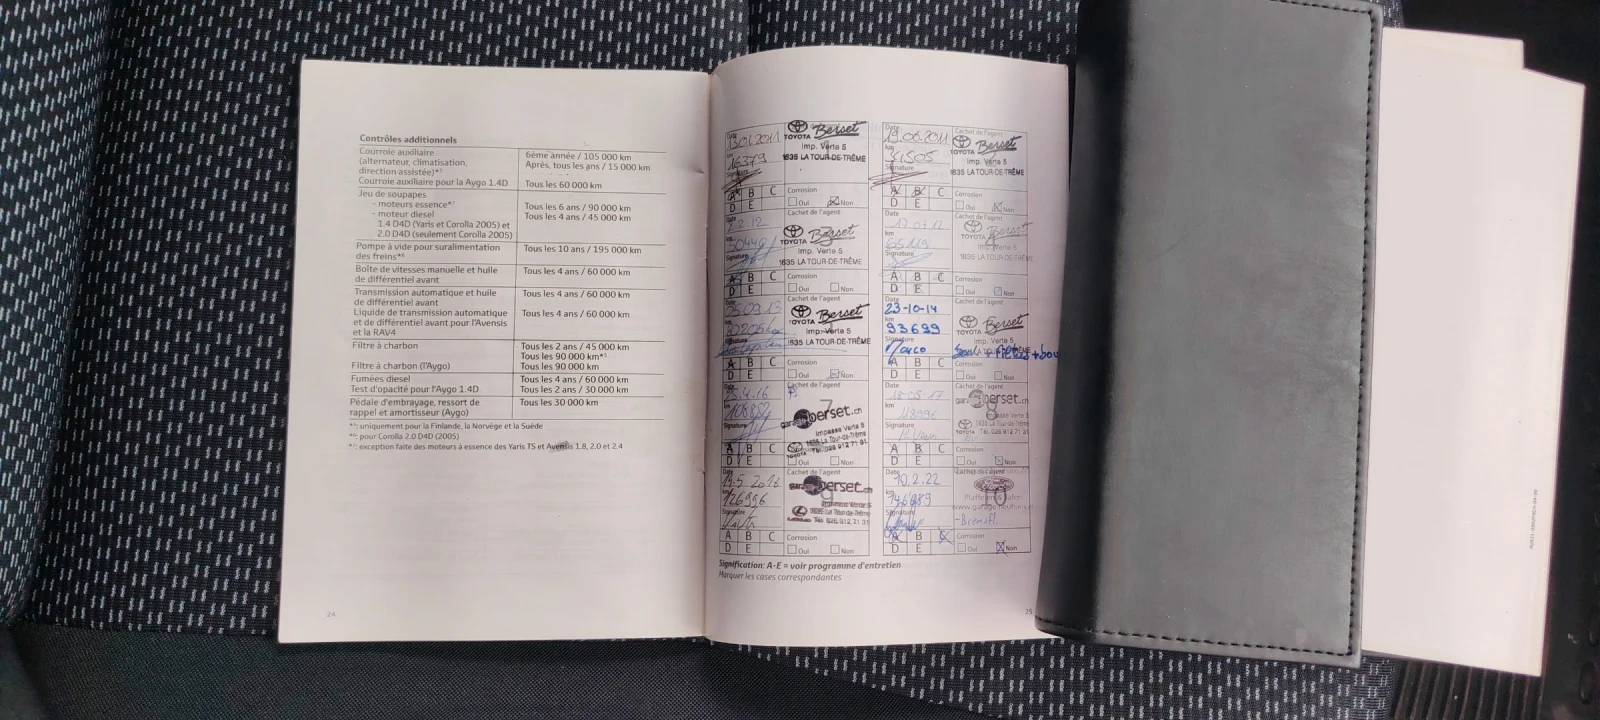 Contrôles additionnels
Courroie auxiliaire
(alternateur, climatisation,
direction assistée)*⁷
6ème année / 105 000 km
Après, tous les ans / 15 000 km
Courroie auxiliaire pour la Aygo 1.4D
Tous les 60 000 km
Jeu de soupapes
- moteurs essence*⁷
Tous les 6 ans / 90 000 km
- moteur diesel
Tous les 4 ans / 45 000 km
1.4 D4D (Yaris et Corolla 2005) et
2.0 D4D (seulement Corolla 2005)
Pompe à vide pour suralimentation
des freins*⁶
Tous les 10 ans / 195 000 km
Boîte de vitesses manuelle et huile
de différentiel avant
Tous les 4 ans / 60 000 km
Transmission automatique et huile
de différentiel avant
Tous les 4 ans / 60 000 km
Liquide de transmission automatique
et de différentiel avant pour l'Avensis
et la RAV4
Tous les 4 ans / 60 000 km
Filtre à charbon
Tous les 2 ans / 45 000 km
Tous les 90 000 km*⁵
Filtre à charbon (l'Aygo)
Tous les 90 000 km
Fumées diesel
Tous les 4 ans / 60 000 km
Test d'opacité pour l'Aygo 1.4D
Tous les 2 ans / 30 000 km
Pédale d'embrayage, ressort de
rappel et amortisseur (Aygo)
Tous les 30 000 km
*⁵: uniquement pour la Finlande, la Norvège et la Suède
*⁶: pour Corolla 2.0 D4D (2005)
*⁷: exception faite des moteurs à essence des Yaris TS et Avensis 1.8, 2.0 et 2.4
24
Date
13.01.2011
km
16379
Signature
TOYOTA Berset
Imp. Verte 5
1635 LA TOUR-DE-TRÊME
A B C
D E
Corrosion
Oui Non
Date
19.06.2011
km
31505
Signature
Cachet de l'agent
TOYOTA Berset
Imp. Verte 5
1635 LA TOUR-DE-TRÊME
A B C
D E
Corrosion
Oui Non
Date
2.2.12
Signature
Cachet de l'agent
TOYOTA Berset
Imp. Verte 5
1635 LA TOUR-DE-TRÊME
A B C
D E
Corrosion
Oui Non
Date
17.07.12
km
65119
Signature
TOYOTA Berset
Imp. Verte 5
1635 LA TOUR-DE-TRÊME
A B C
D E
Corrosion
Oui Non
Date
09.13
Signature
TOYOTA Berset
Imp. Verte 5
1635 LA TOUR-DE-TRÊME
A B C
D E
Corrosion
Oui Non
Date
23-10-14
km
93699
Signature
TOYOTA Berset
Imp. Verte 5
A B C
D E
Corrosion
Oui Non
Date
4.16
Signature
Cachet de l'agent
garageberset.ch
Impasse Verte 5
1635 La Tour-de-Trême
TOYOTA Tél. 026 912 71 31
A B C
D E
Oui Non
Date
18.05.17
km
118996
Signature
Cachet de l'agent
Impasse Verte 5
1635 La Tour-de-Trême
TOYOTA Tél. 026 912 71 31
A B C
D E
Corrosion
Oui Non
5.2018
km
126996
Signature
Cachet de l'agent
garageberset.ch
Impasse Verte 5
1635 La Tour-de-Trême
Tél. 026 912 71 31
A B C
D E
Corrosion
Oui Non
Date
10.2.22
km
146989
Signature
Cachet de l'agent
-Bremsfl.
A B C
D E
Corrosion
Oui Non
Signification: A-E = voir programme d'entretien
Marquer les cases correspondantes
25